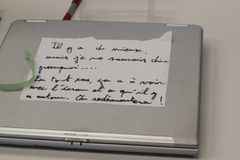 Il y a du mieux,
mais je ne saurais dire
pourquoi...
En tout cas, ça a à voir
avec l'écran et ce qu'il y
a autour. On redémontera !